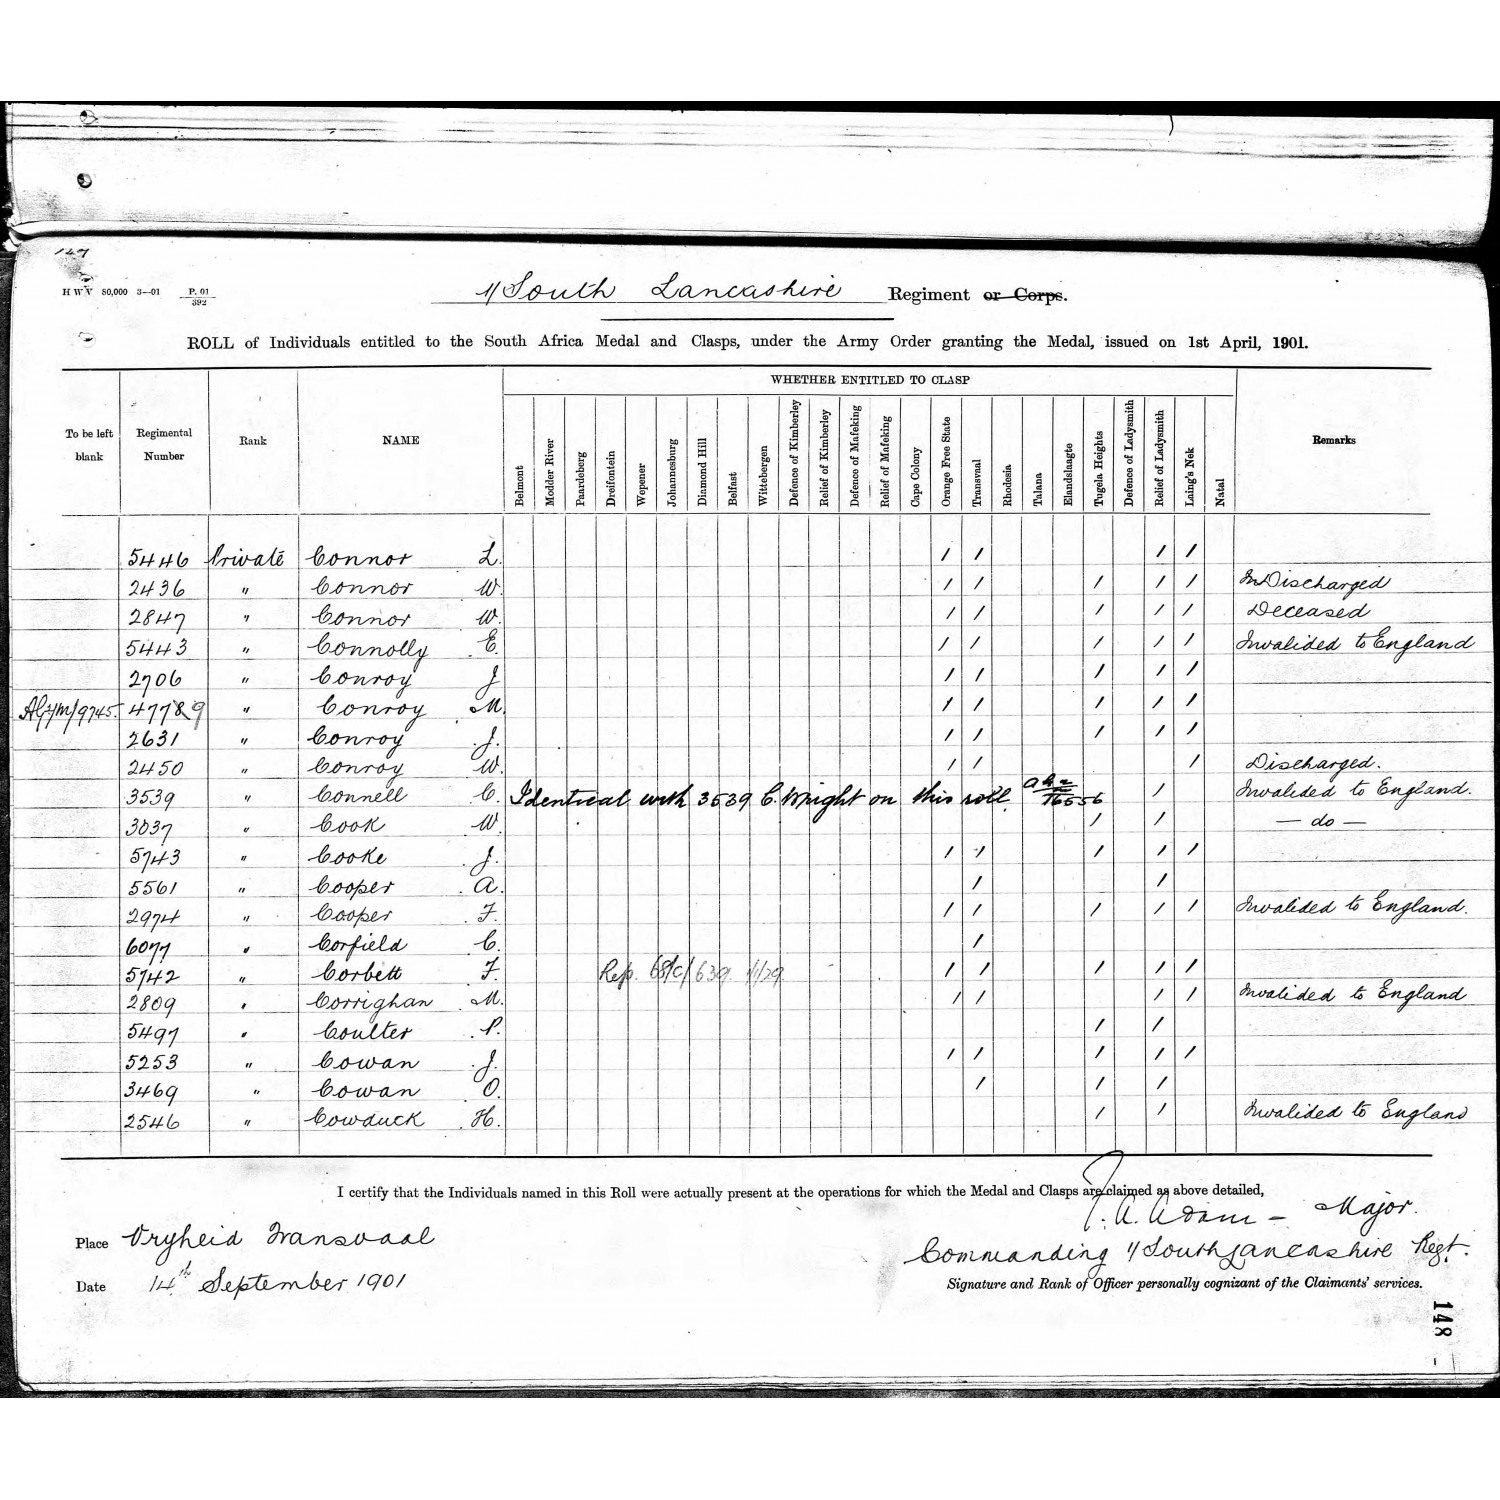 127
H W V 80,000 3—01 P. 01/392
1/South Lancashire Regiment or Corps.
ROLL of Individuals entitled to the South Africa Medal and Clasps, under the Army Order granting the Medal, issued on 1st April, 1901.
WHETHER ENTITLED TO CLASP
To be left blank Regimental Number Rank NAME Belmont Modder River Paardeberg Dreifontein Wepener Johannesburg Diamond Hill Belfast Wittebergen Defence of Kimberley Relief of Kimberley Defence of Mafeking Relief of Mafeking Cape Colony Orange Free State Transvaal Rhodesia Talana Elandslaagte Tugela Heights Defence of Ladysmith Relief of Ladysmith Laing's Nek Natal Remarks
5446 Private Connor L. / / / /
2436 " Connor W. / / / / / Discharged
2847 " Connor W. / / / / / Deceased
5443 " Connolly E. / / / / / Invalided to England
2706 " Conroy J / / / / /
47789 " Conroy M. / / / / /
2631 " Conroy J. / / / / /
2450 " Conroy W. / / / Discharged.
3539 " Connell C. Identical with 3539 C. Wright on this roll / Invalided to England.
3037 " Cook W. / / — do —
5743 " Cooke J. / / / / /
5561 " Cooper A. / /
2974 " Cooper F. / / / / / Invalided to England.
6077 " Corfield C. /
5742 " Corbett F. Rep. 68/C/639. 1/1/29 / / / / /
2809 " Corrighan M. / / / / Invalided to England
5497 " Coulter P. / /
5253 " Cowan J. / / / / /
3469 " Cowan O. / / /
2546 " Cowduck H. / / Invalided to England
I certify that the Individuals named in this Roll were actually present at the operations for which the Medal and Clasps are claimed as above detailed,
T. A. Adam – Major.
Place Vryheid Transvaal
Commanding 1/South Lancashire Regt.
Date 14th September 1901
Signature and Rank of Officer personally cognizant of the Claimants' services.
148